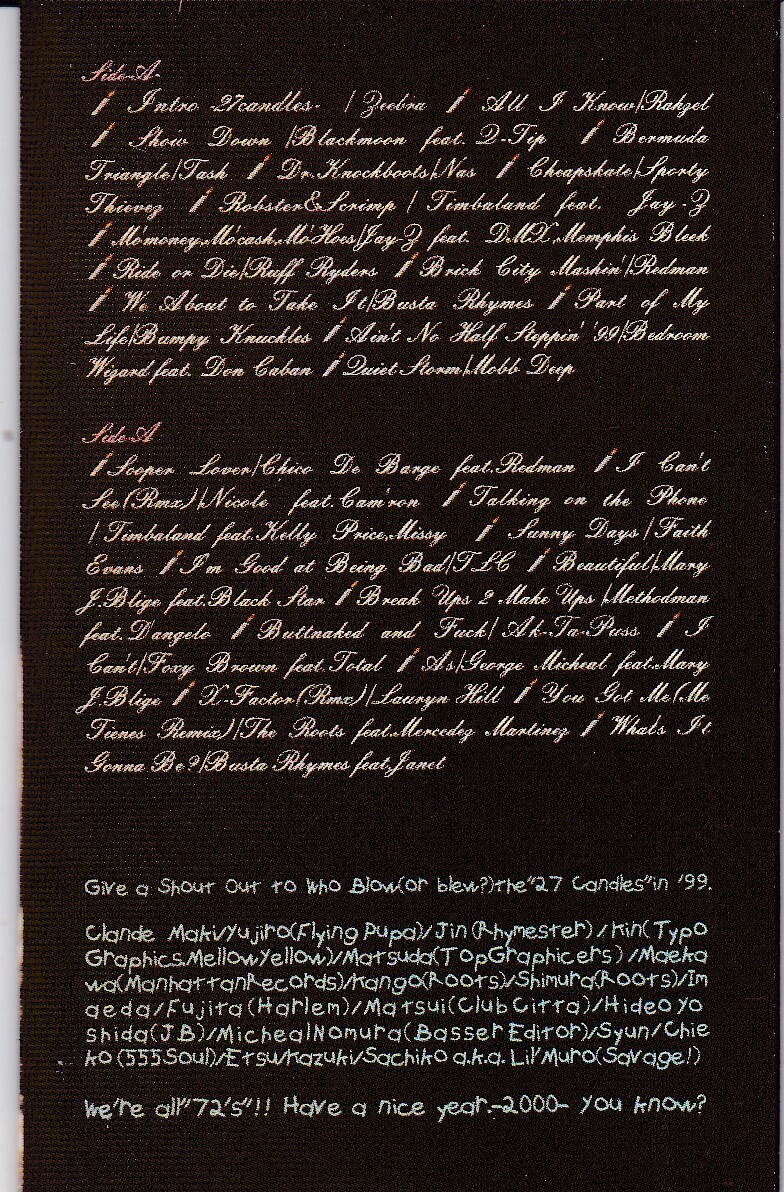 Side-A-
Intro -27candles- / Zeebra All I Know/Rahzel
Show Down /Blackmoon feat. Q-Tip Bermuda
Triangle/Tash Dr.Knockboots/Nas Cheapskate/Sporty
Thievez Robster&Scrimp / Timbaland feat. Jay-Z
Mo'money,Mo'cash,Mo'Hoes/Jay-Z feat. DMX,Memphis Bleek
Ride or Die/Ruff Ryders Brick City Mashin'/Redman
We About to Take It/Busta Rhymes Part of My
Life/Bumpy Knuckles Ain't No Half Steppin' '99/Bedroom
Wizard feat. Don Caban Quiet Storm/Mobb Deep
Side-A
Sooper Lover/Chico De Barge feat.Redman I Can't
See(Rmx)/Nicole feat.Cam'ron Talking on the Phone
/Timbaland feat.Kelly Price,Missy Sunny Days/Faith
Evans I'm Good at Being Bad/TLC Beautiful/Mary
J.Blige feat.Black Star Break Ups 2 Make Ups /Methodman
feat.D'angelo Buttnaked and Fuck/ Ak-Ta-Puss I
Can't/Foxy Brown feat.Total As/George Micheal feat.Mary
J.Blige X-Factor(Rmx)/Lauryn Hill You Got Me(Me
Tienes Remix)/The Roots feat.Mercedez Martinez What's It
Gonna Be?/Busta Rhymes feat.Janet
Give a Shout Out to Who Blow(or blew?)the"27 Candles"in '99.
Clande Maki/Yujiro(Flying Pupa)/Jin(Rhymester)/Kin(Typo
Graphics,MellowYellow)/Matsuda(TopGraphicers)/Maeka
wa(ManhattanRecords)/Kango(Roots)/Shimura(Roots)/Im
aeda/Fujita(Harlem)/Matsui(Club Citta)/Hideo Yo
shida(J.B)/Micheal Nomura(Basser Editor)/Syun/Chie
ko(555Soul)/Etsu/Kazuki/Sachiko a.k.a. Lil'Muro(Savage!)
We're all"72's"!! Have a nice year.-2000- you know?